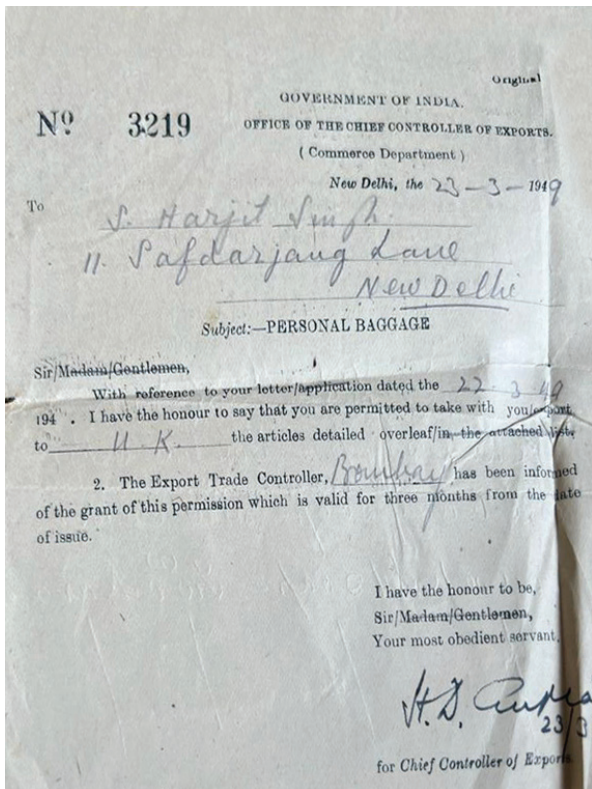 Original
GOVERNMENT OF INDIA.
Nº 3219
OFFICE OF THE CHIEF CONTROLLER OF EXPORTS.
( Commerce Department )
New Delhi, the 23-3-1949
To
S. Harjit Singh
11. Safdarjang Lane
New Delhi
Subject:—PERSONAL BAGGAGE
Sir/Madam/Gentlemen,
With reference to your letter/application dated the 22.3.49
194 . I have the honour to say that you are permitted to take with you/export
to U.K. the articles detailed overleaf/in the attached list.
2. The Export Trade Controller, Bombay has been informed
of the grant of this permission which is valid for three months from the date
of issue.
I have the honour to be,
Sir/Madam/Gentlemen,
Your most obedient servant,
H.D. Gupta
23/3
for Chief Controller of Exports